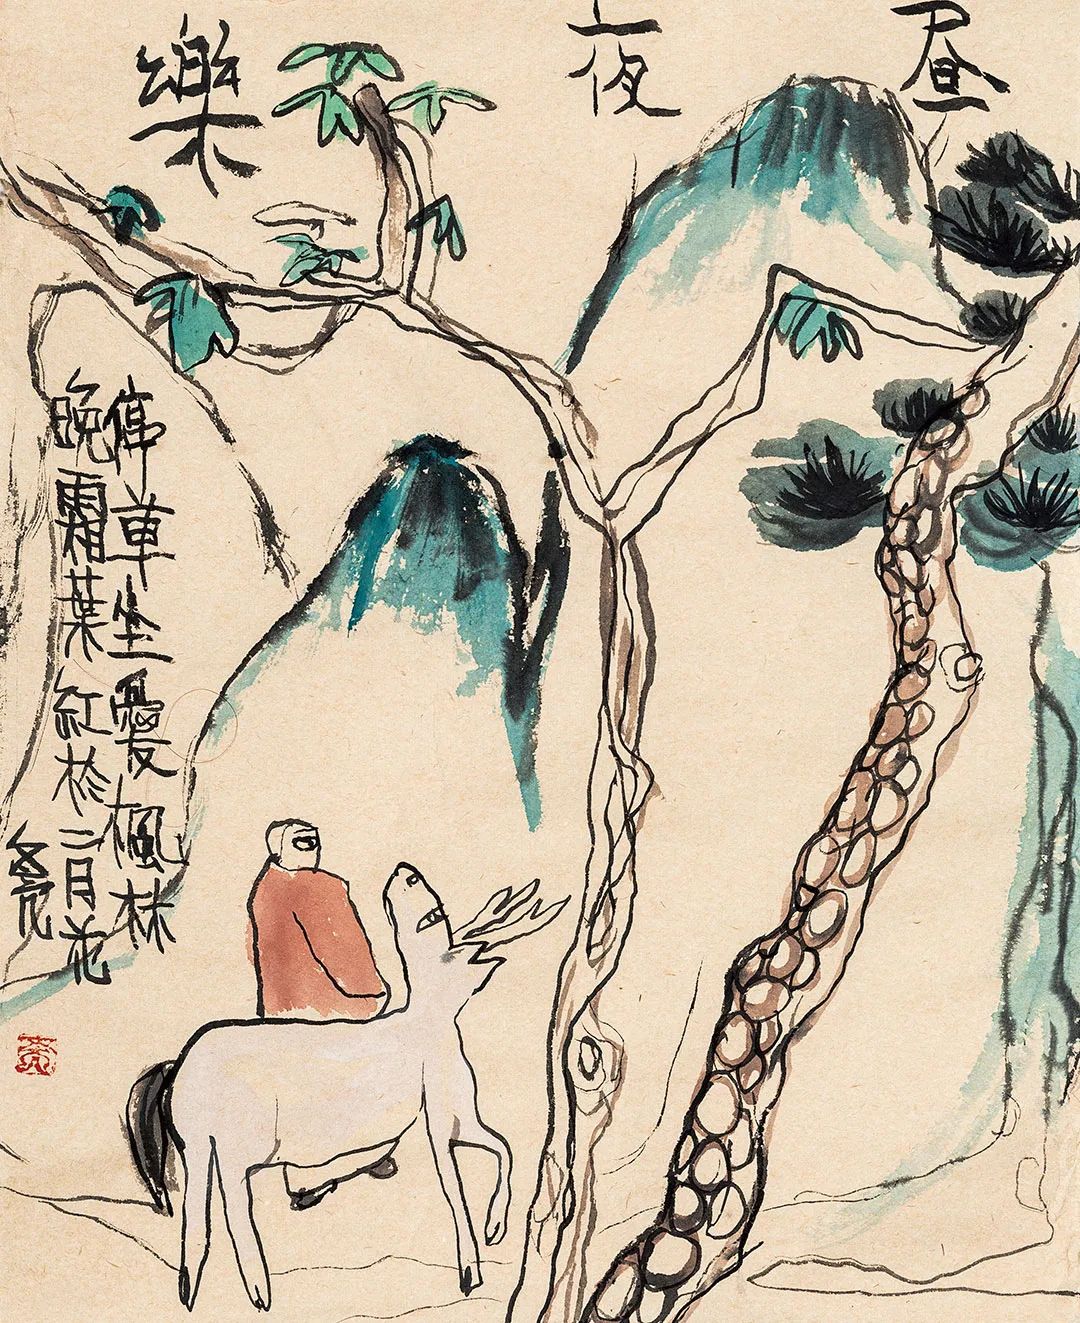 昼夜樂
停車坐愛楓林
晚霜葉紅於二月花